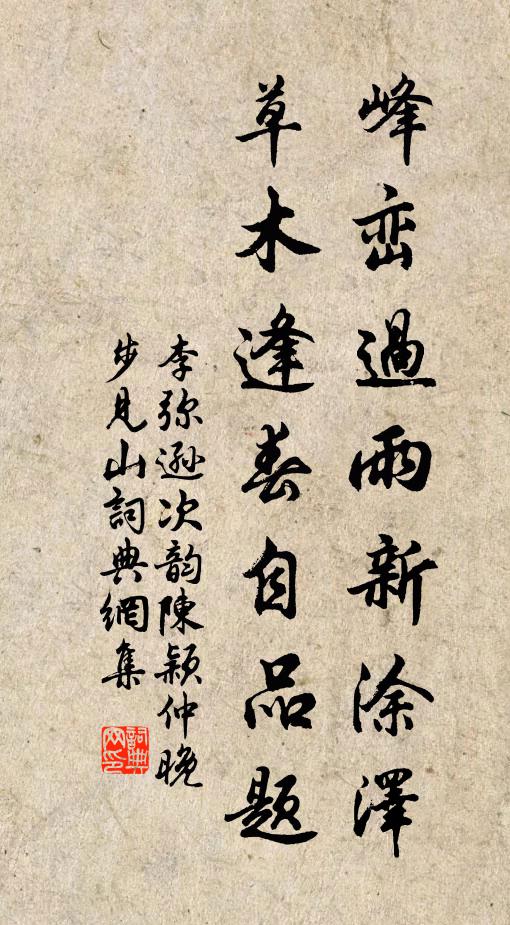 峰峦過雨新涂澤
草木逢春自品題
李弥遜次韵陳颖仲晚
步見山詞典網集
詞典網印